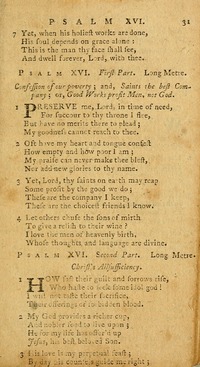 PSALM XVI. 31
7 Yet, when his holiest works are done,
His soul depends on grace alone:
This is the man thy face shall see,
And dwell forever, Lord, with thee.
PSALM XVI. First Part. Long Metre.
Confession of our poverty; and, Saints the best Com-
pany; or, Good Works profit Men, not God.
1 PRESERVE me, Lord, in time of need,
For succour to thy throne I flee,
But have no merits there to plead;
My goodness cannot reach to thee.
2 Oft have my heart and tongue confest
How empty and how poor I am;
My praise can never make thee blest,
Nor add new glories to thy name.
3 Yet, Lord, thy saints on earth may reap
Some profit by the good we do;
These are the company I keep,
These are the choicest friends I know.
4 Let others chuse the sons of mirth
To give a relish to their wine?
I love the men of heavenly birth,
Whose thoughts and language are divine.
PSALM XVI. Second Part. Long Metre.
Christ's Allsufficiency.
1 HOW fast their guilt and sorrows rise,
Who haste to seek some idol god!
I will not taste their sacrifice,
offerings of forbidden blood.
2 My God provides a richer cup,
And nobler food to live upon;
He for my life has offer'd up
Jesus, his best beloved Son.
3 His love is my perpetual feast;
By day his counsels guide me right;